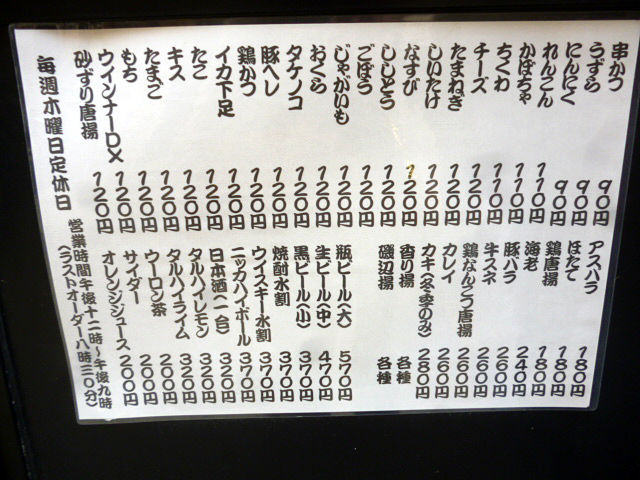 串かつ 90円
うずら 90円
にんにく 90円
れんこん 110円
かぼちゃ 110円
ちくわ 110円
チーズ 120円
たまねぎ 120円
しいたけ 120円
なすび 120円
ししとう 120円
ごぼう 120円
じゃがいも 120円
おくら 120円
タケノコ 120円
豚ヘレ 120円
鶏かつ 120円
イカ下足 120円
たこ 120円
キス 120円
たまご 120円
もち 120円
ウインナーDX 120円
砂ずり唐揚 120円
アスパラ 180円
ほたて 180円
鶏唐揚 180円
海老 240円
豚バラ 260円
牛スネ 260円
鶏なんこつ唐揚 260円
カレイ 260円
カキ(冬季のみ) 280円
香り揚 各種
磯辺揚 各種
瓶ビール(大) 570円
生ビール(中) 470円
黒ビール(小) 370円
焼酎水割 370円
ウイスキー水割 370円
ニッカハイボール 370円
日本酒(一合) 320円
タルハイレモン 320円
タルハイライム 320円
ウーロン茶 200円
サイダー 200円
オレンジジュース 200円
毎週木曜日定休日
営業時間午後十二時~午後九時
(ラストオーダー八時三0分)